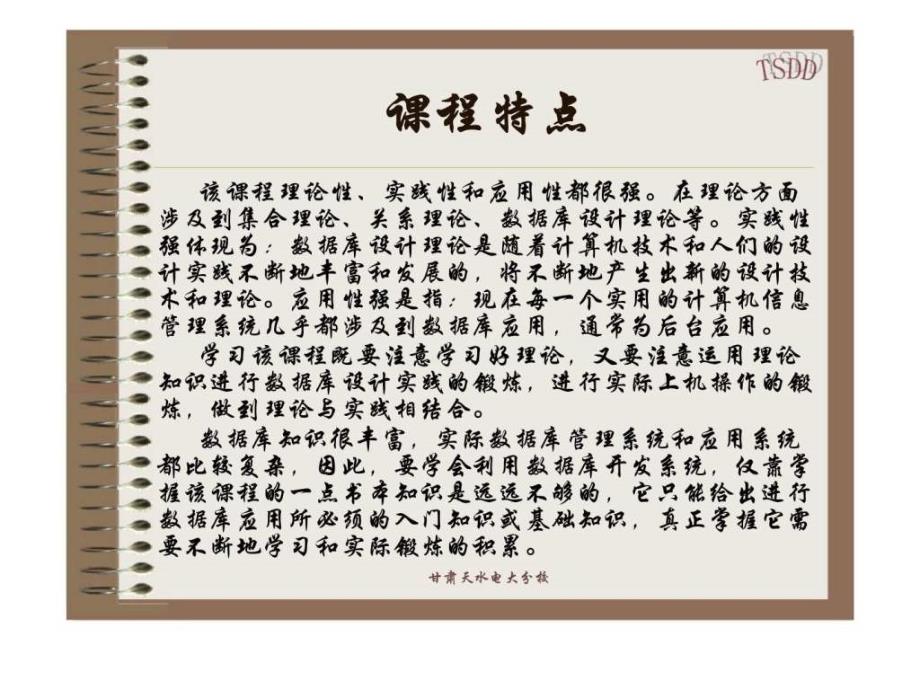 TSDD
课程特点
该课程理论性、实践性和应用性都很强。在理论方面
涉及到集合理论、关系理论、数据库设计理论等。实践性
强体现为：数据库设计理论是随着计算机技术和人们的设
计实践不断地丰富和发展的，将不断地产生出新的设计技
术和理论。应用性强是指：现在每一个实用的计算机信息
管理系统几乎都涉及到数据库应用，通常为后台应用。
学习该课程既要注意学习好理论，又要注意运用理论
知识进行数据库设计实践的锻炼，进行实际上机操作的锻
炼，做到理论与实践相结合。
数据库知识很丰富，实际数据库管理系统和应用系统
都比较复杂，因此，要学会利用数据库开发系统，仅靠学
握该课程的一点书本知识是远远不够的，它只能给出进行
数据库应用所必须的入门知识或基础知识，真正掌握它需
要不断地学习和实际锻炼的积累。
甘肃天水电大分校